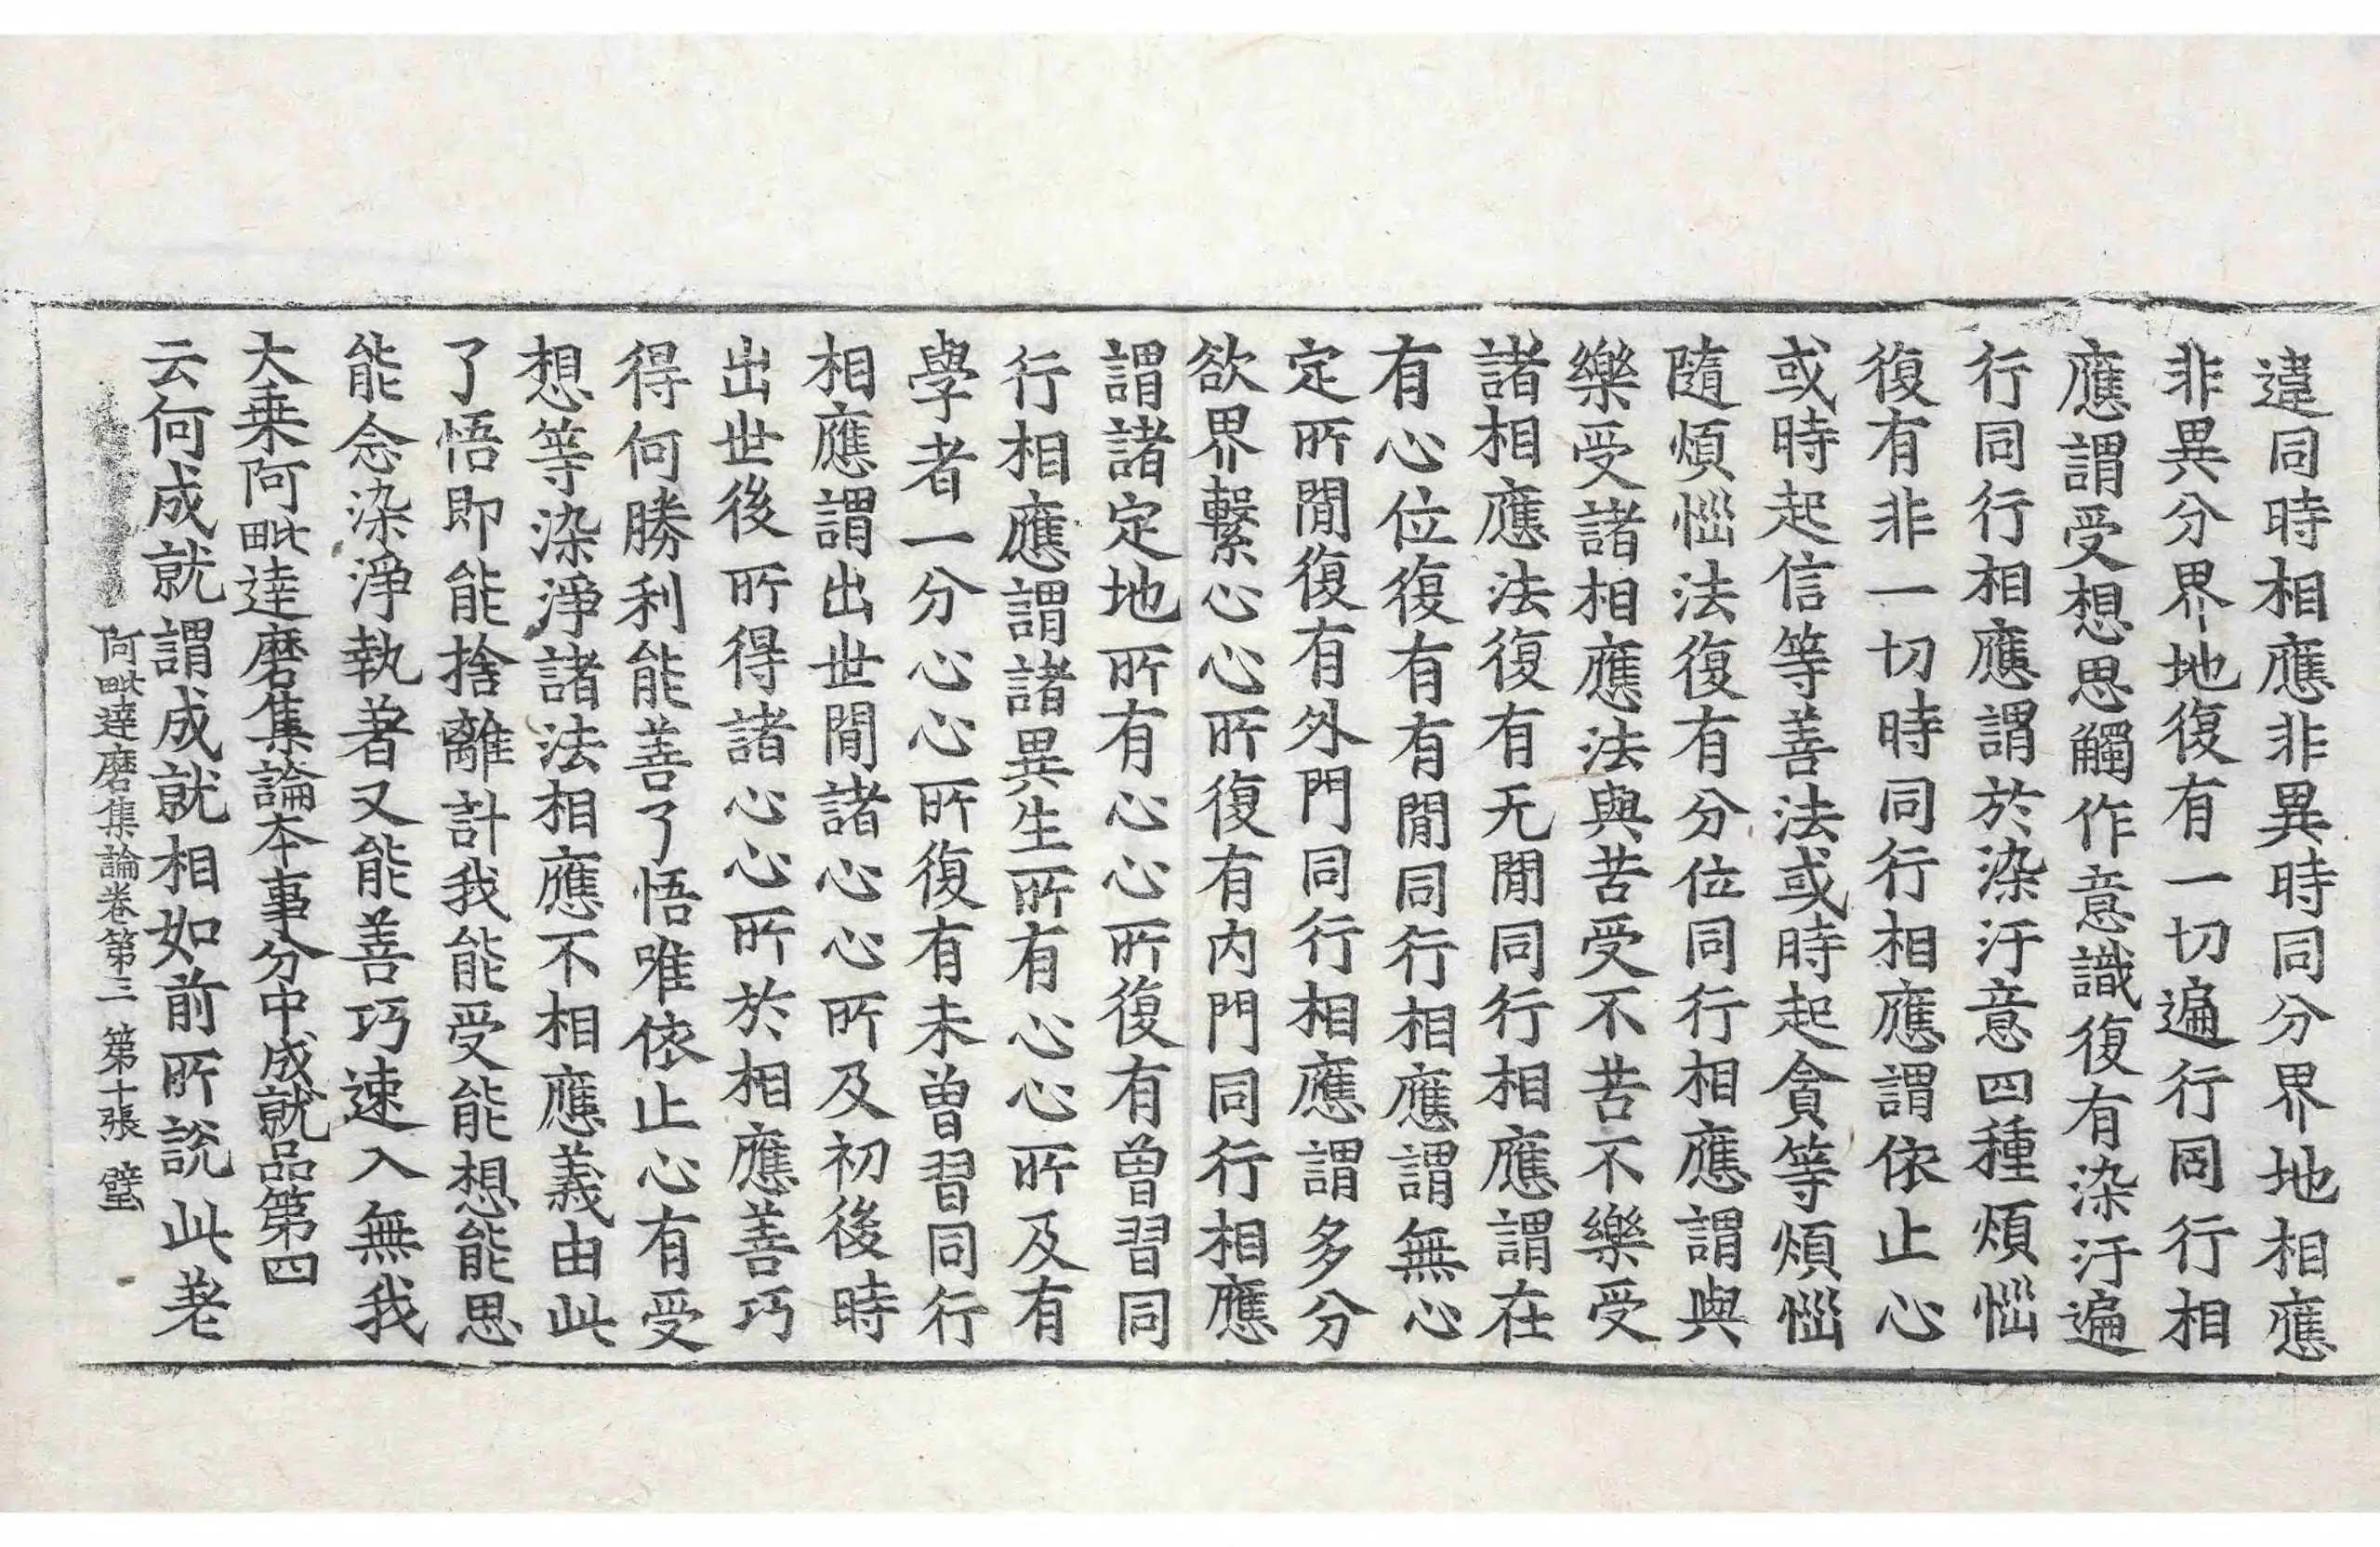 違同時相應非異時同分界地相應
非異分界地復有一切遍行同行相
應謂受想思觸作意識復有染汙遍
行同行相應謂於染汙意四種煩惱
復有非一切時同行相應謂依止心
或時起信等善法或時起貪等煩惱
隨煩惱法復有分位同行相應謂與
樂受諸相應法與苦受不苦不樂受
諸相應法復有无閒同行相應謂在
有心位復有有閒同行相應謂無心
定所閒復有外門同行相應謂多分
欲界繫心心所復有内門同行相應
謂諸定地所有心心所復有曾習同
行相應謂諸異生所有心心所及有
學者一分心心所復有未曾習同行
相應謂出世閒諸心心所及初後時
出世後所得諸心心所於相應善巧
得何勝利能善了悟唯依止心有受
想等染淨諸法相應不相應義由此
了悟即能捨離計我能受能想能思
能念染淨執著又能善巧速入無我
大乗阿毗達磨集論本事分中成就品第四
云何成就謂成就相如前所說此差
阿毗達磨集論卷第三 第十張 璧